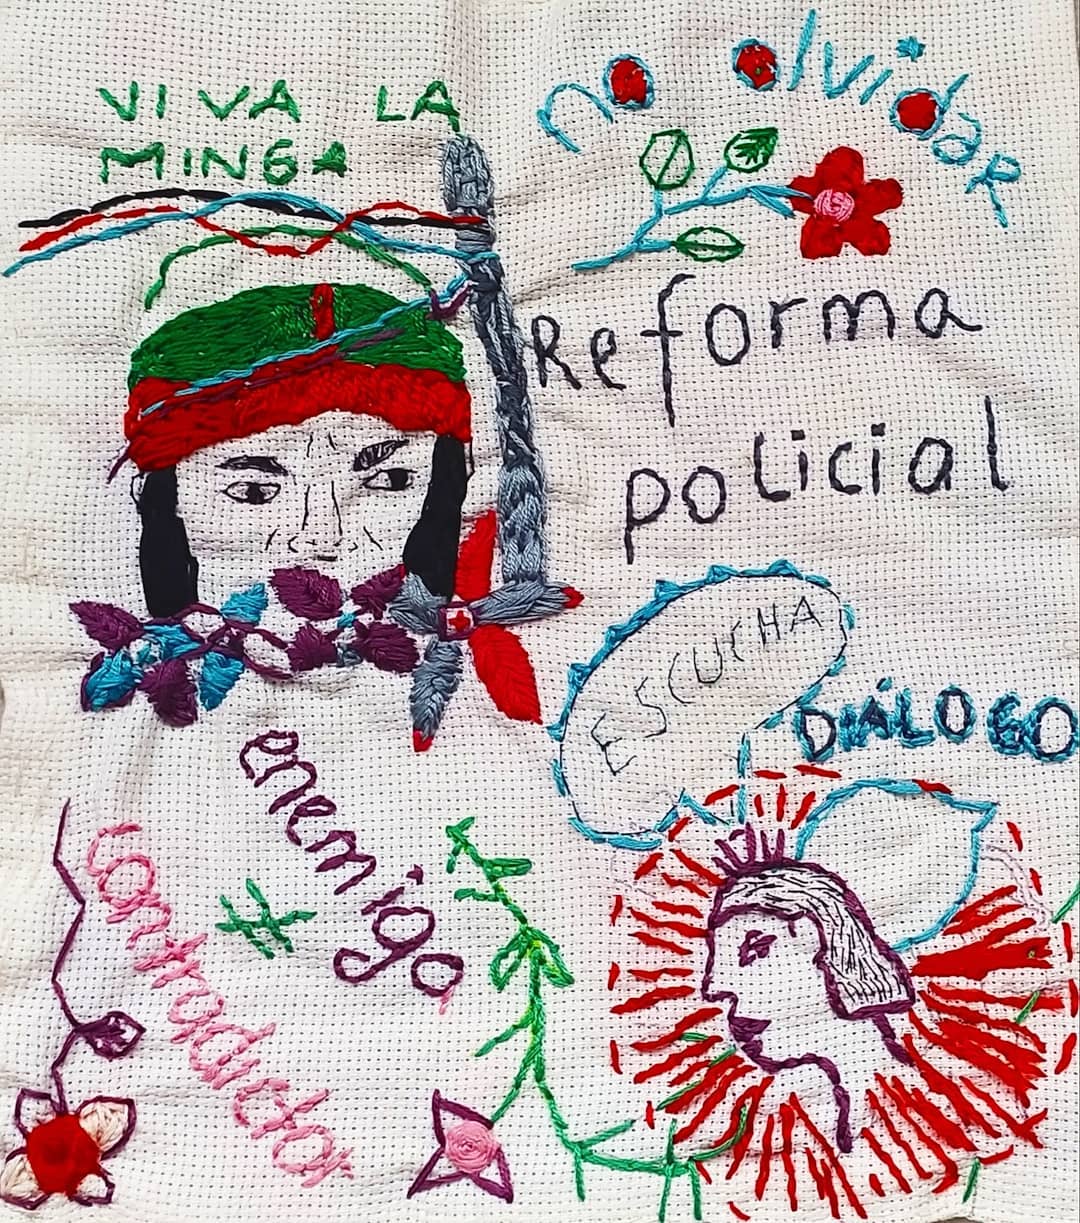 VIVA LA
MINGA
no olvidar
Reforma
policial
ESCUCHA
DIÁLOGO
enemigo
#
contradictor